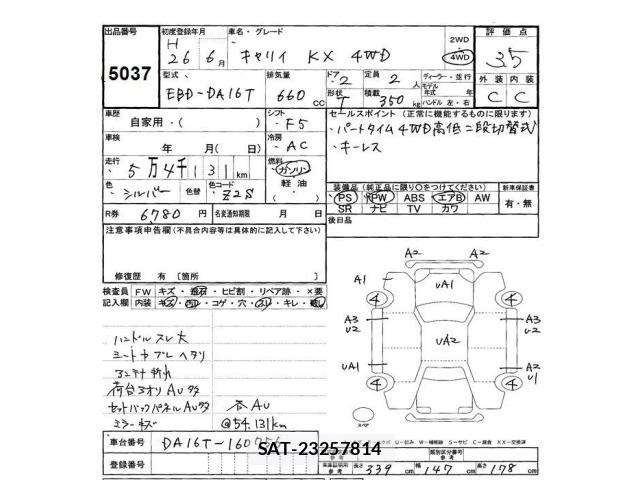 出品番号 初度登録年月 車名・グレード 評価点
5037 H 26年 6月 キャリイ KX 4WD 2WD 4WD 3.5
型式 排気量 ドア 定員 ディーラー・並行 外装 内装
EBD-DA16T 660cc 2 2人 モデル年式 年 C C
形状 T 積載 350kg ハンドル 左・右
車歴 自家用・( ) シフト F5 セールスポイント (正常に機能するものに限ります)
車検 年 月(日) 冷房 AC ・パートタイム4WD高低二段切替式
・キーレス
走行 5万4千131km 燃料 ガソリン 軽油 ( )
色 シルバー 色替 色コード Z2S
装備品 (純正品に限り○をつけてください) 新車保証書
PS PW ABS エアB AW 有・無
SR ナビ TV カワ
R券 6,780円 名変通知期限 月 日 後日品
注意事項申告欄(不具合内容等は具体的に記入して下さい)
修復歴 有 〔箇所 〕
検査員記入欄 FW キズ・飛石・ヒビ割・リペア跡・×要
内装 キズ・コゲ・穴・キレ
ハンドルスレ大
シートカブレヘタリ
アンテナ折れ
荷台3オリAU多
セットバックパネルAU多
ミラーキズ
各AU
@54.131km
A2 A2
A1 UA1
4 4
A3 U2 UA2 A3 U2
UA1 A2 U1
4 4
スペア
車台番号 DA16T-160
SAT-23257814
登録番号
長さ 339cm 幅 147cm 高さ 178cm